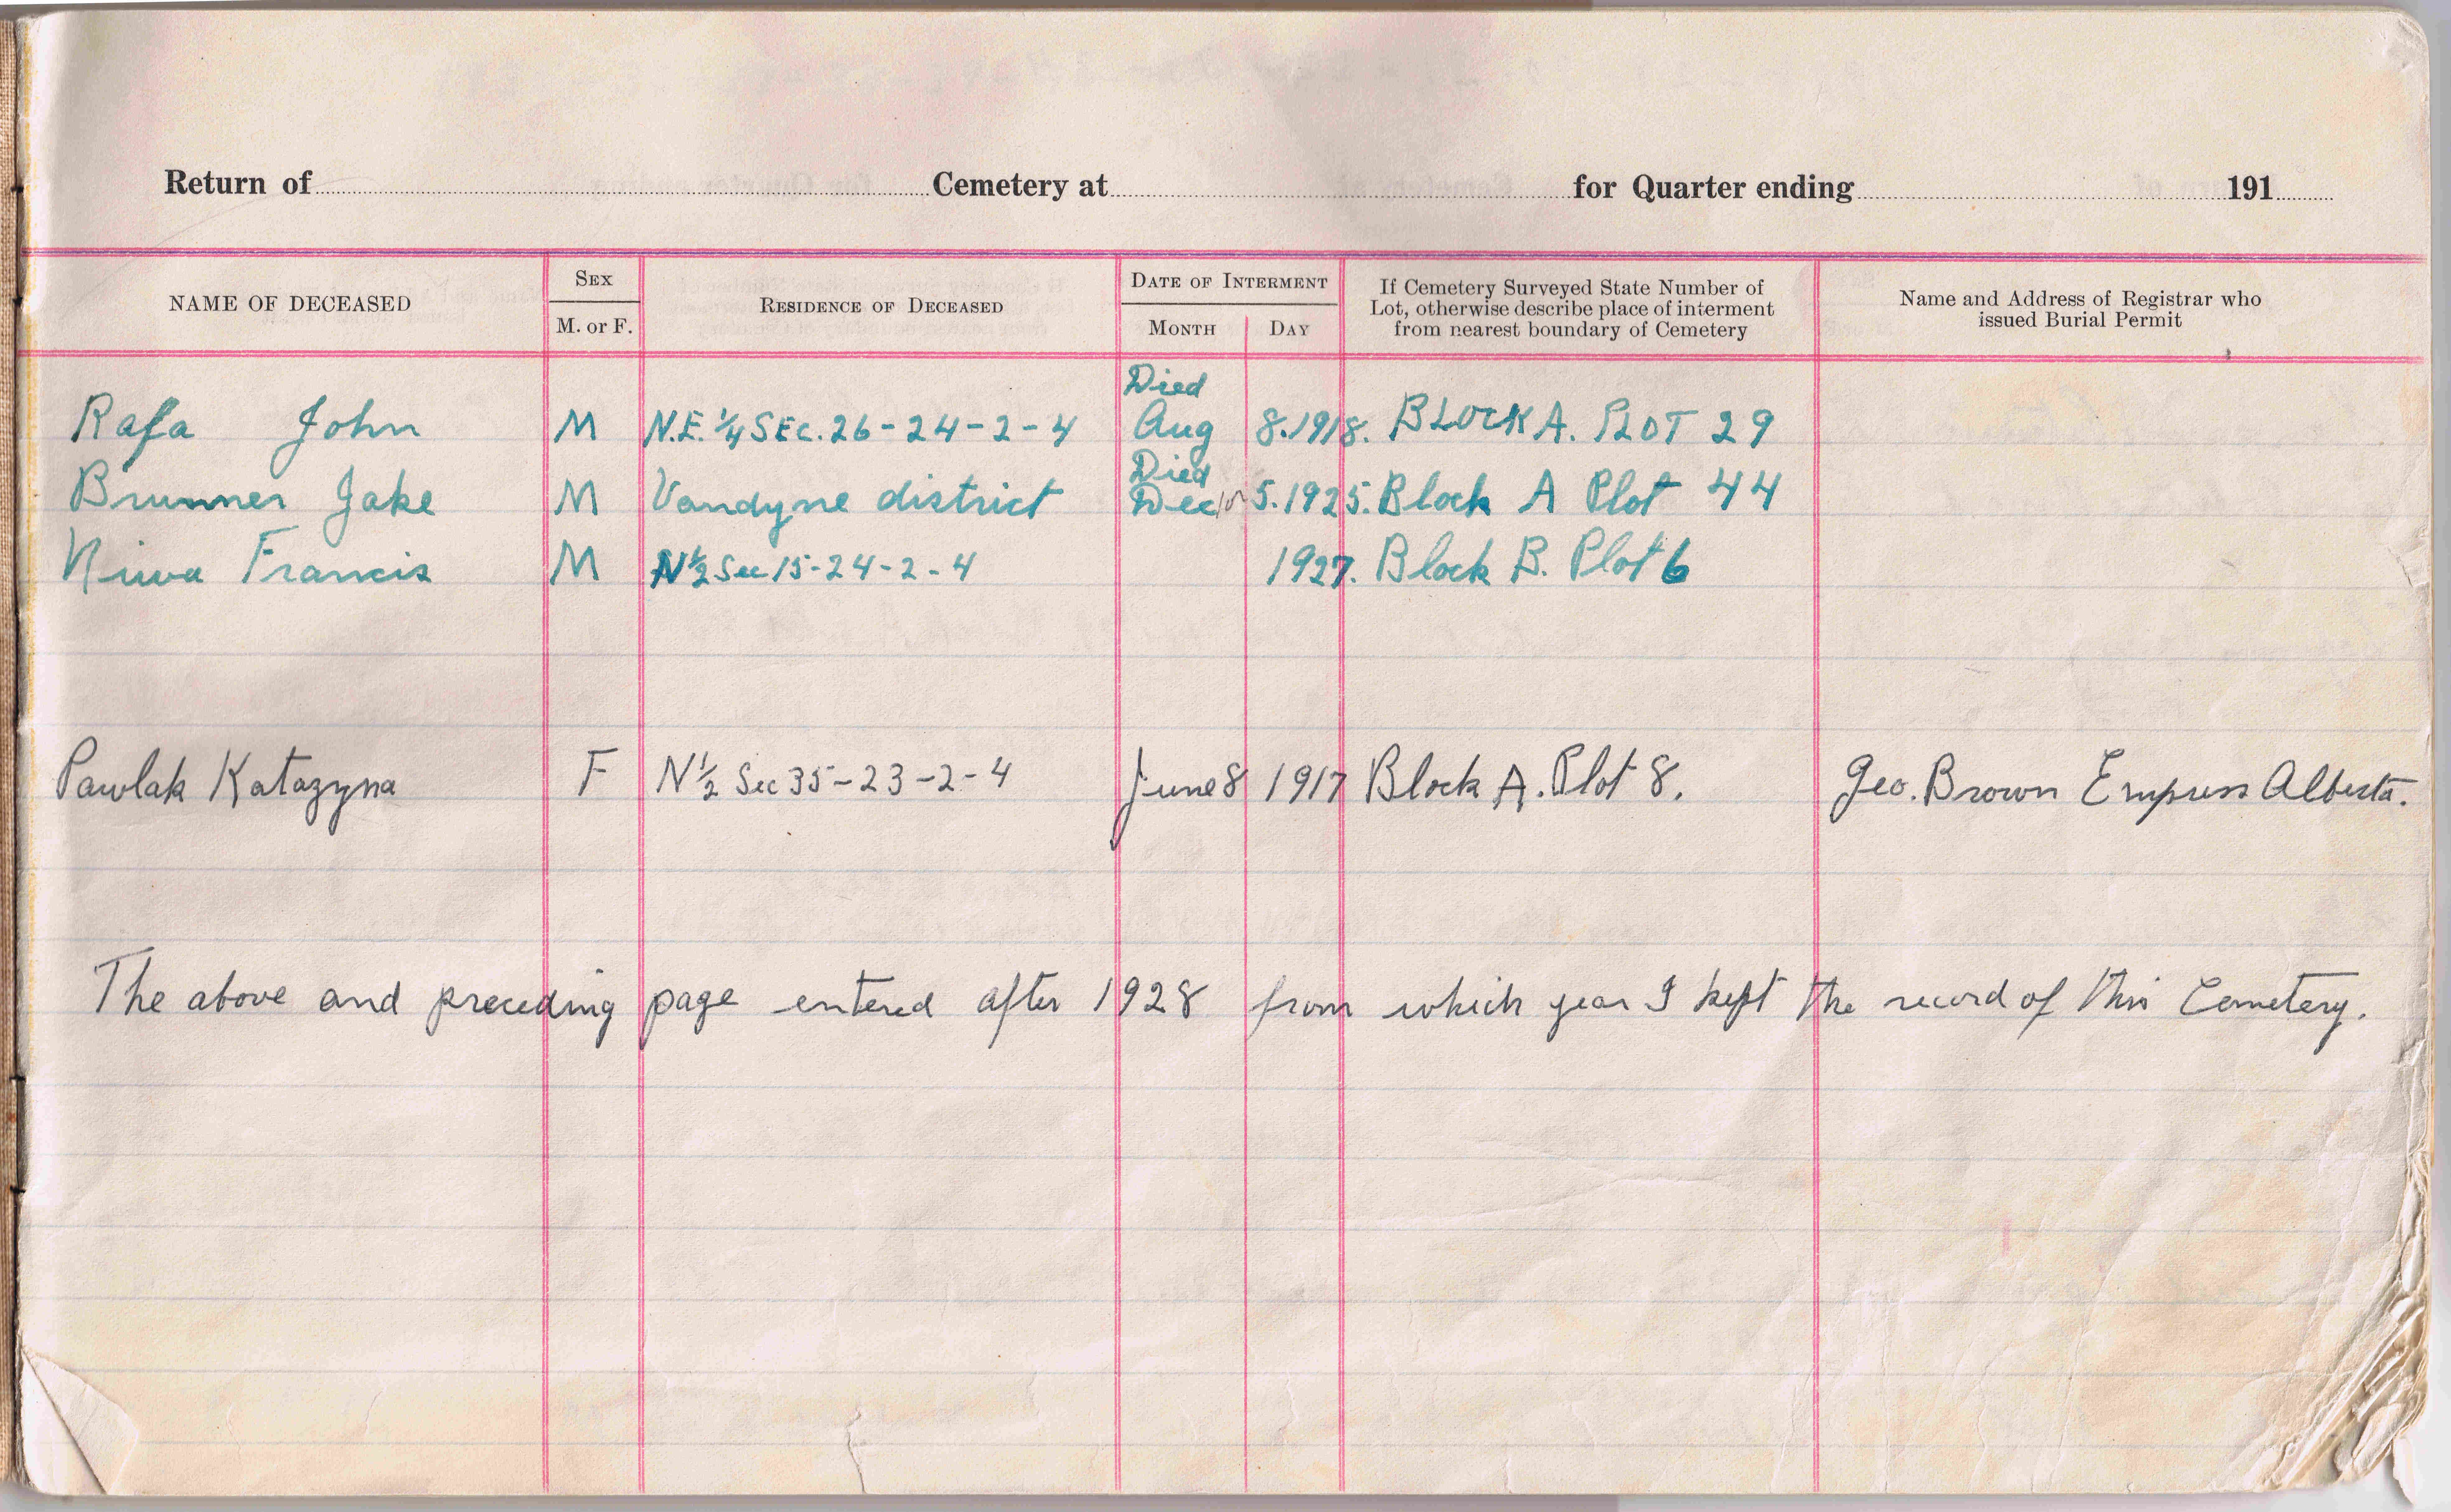 Return of Cemetery at for Quarter ending 191
NAME OF DECEASED
SEX
M. or F.
RESIDENCE OF DECEASED
DATE OF INTERMENT
MONTH DAY
If Cemetery Surveyed State Number of
Lot, otherwise describe place of interment
from nearest boundary of Cemetery
Name and Address of Registrar who
issued Burial Permit
Died
Rafa John M N.E. 1/4 SEC. 26-24-2-4 Aug 8.1918. BLOCK A. PLOT 29
Died
Brunner Jake M Vandyne district Dec 5.1925. Block A Plot 44
Niwa Francis M N1/2 Sec 15-24-2-4 1927. Block B. Plot 6
Pawlak Katazyna F N1/2 Sec 35-23-2-4 June 8 1917 Block A. Plot 8. Geo. Brown Empress Alberta.
The above and preceding page entered after 1928 from which year I kept the record of this Cemetery.